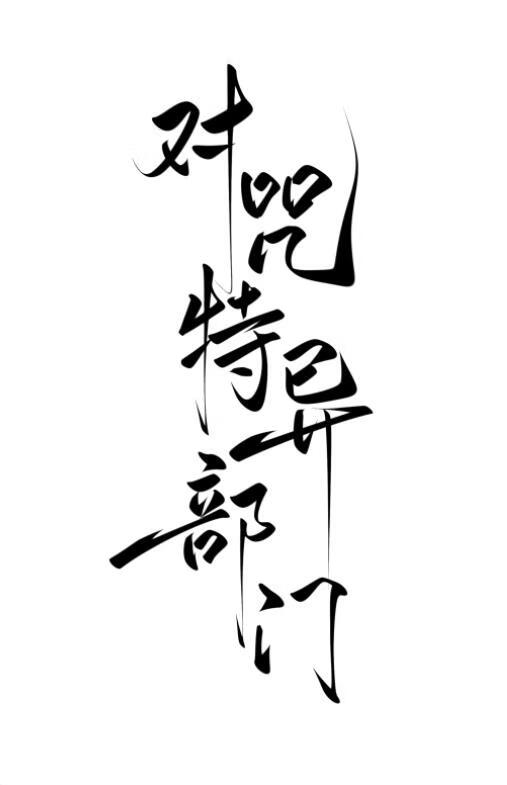 对咒特异部门